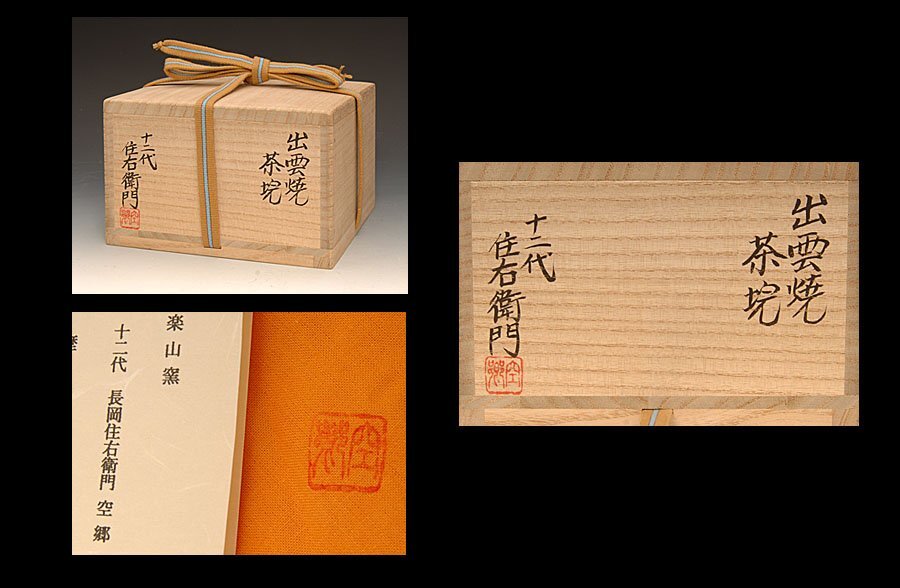 出雲焼
茶垸
十二代
住右衛門
空郷
楽山窯
十二代 長岡住右衛門 空郷
歴
空郷
出雲焼
茶垸
十二代
住右衛門
空郷